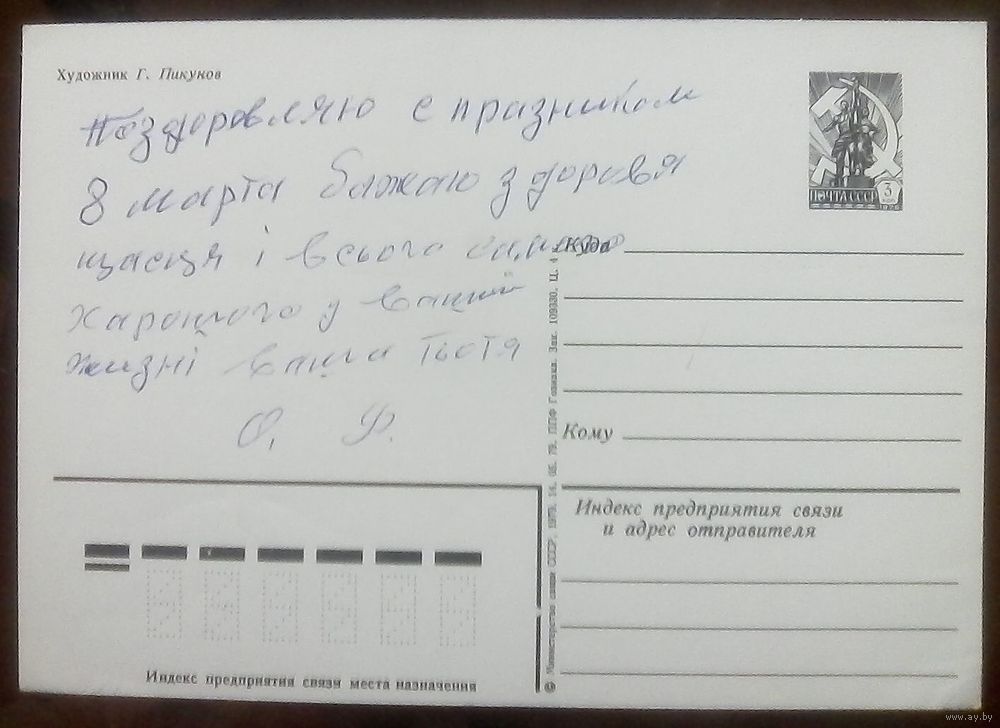 Художник Г. Пикунов
Поздоровляю с празником
8 марта бажаю здоровя
щастя і всього самого
харошого у вашій
жизні ваша тьотя
О, Ф.
ПОЧТА СССР 3 коп
Куда
Кому
Индекс предприятия связи
и адрес отправителя
Индекс предприятия связи места назначения
© Министерство связи СССР, 1979. 14. 05. 79. ППФ Гознака. Зак. 109330. Ц. 4 к.
www.ay.by